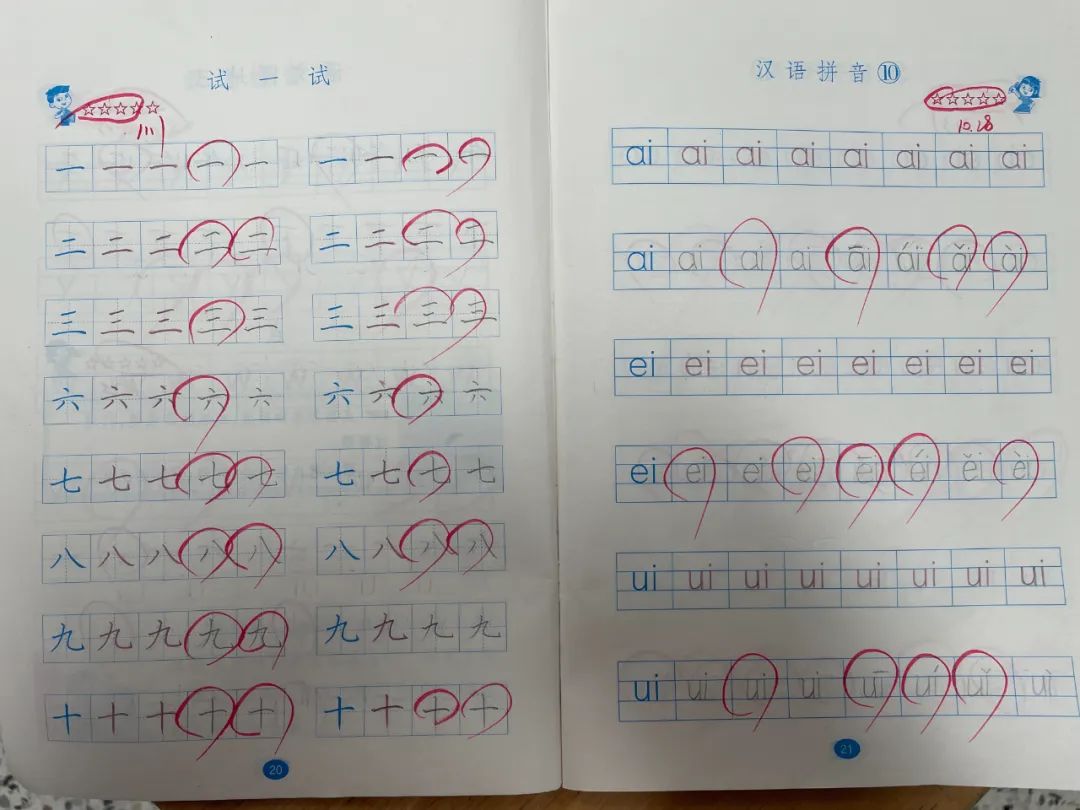 试一试
一 一 一 一 一 一 一 一 一
二 二 二 二 二 二 二 二 二
三 三 三 三 三 三 三 三 三
六 六 六 六 六 六 六 六 六
七 七 七 七 七 七 七 七 七
八 八 八 八 八 八 八 八 八
九 九 九 九 九 九 九 九 九
十 十 十 十 十 十 十 十 十
20
汉语拼音⑩
10.28
ai ai ai ai ai ai ai ai
ai ai ai ai āi ái ǎi ài
ei ei ei ei ei ei ei ei
ei ei ei ei ēi éi ěi èi
ui ui ui ui ui ui ui ui
ui ui ui ui uī uí uǐ uì
21